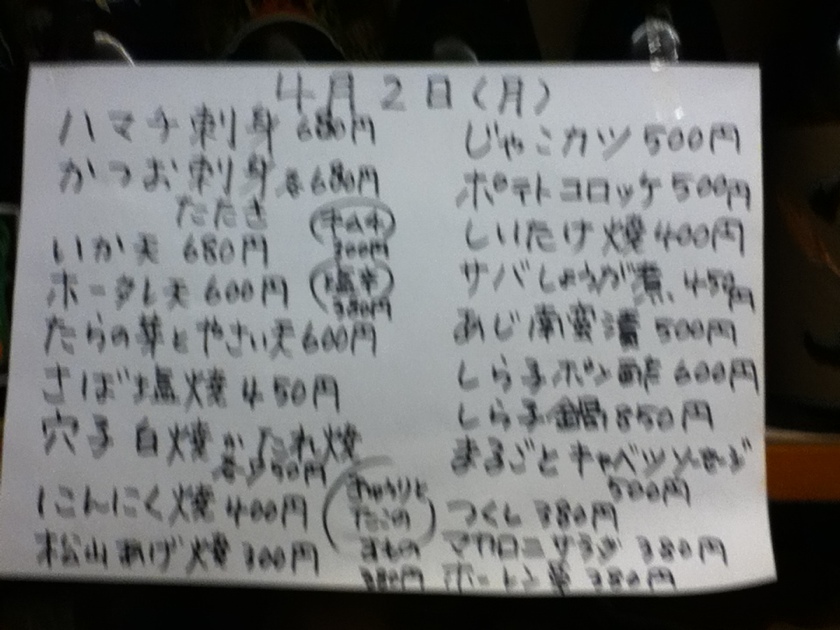 4月2日(月)
ハマチ刺身 680円
かつお刺身 各680円
たたき
キムチ
300円
いか天 680円
ホタレ天 600円
塩辛
380円
たらの芽とやさい天 600円
さば塩焼 450円
穴子 白焼かたれ焼
各 円
にんにく焼 400円
松山あげ焼 300円
きゅうりと
たこの
すもの
380円
じゃこカツ 500円
ポテトコロッケ 500円
しいたけ焼 400円
サバしょうが煮 450円
あじ南蛮漬 500円
しら子ポン酢 600円
しら子鍋 850円
まるごとキャベツソーセージ
500円
つくし 380円
マカロニサラダ 380円
380円